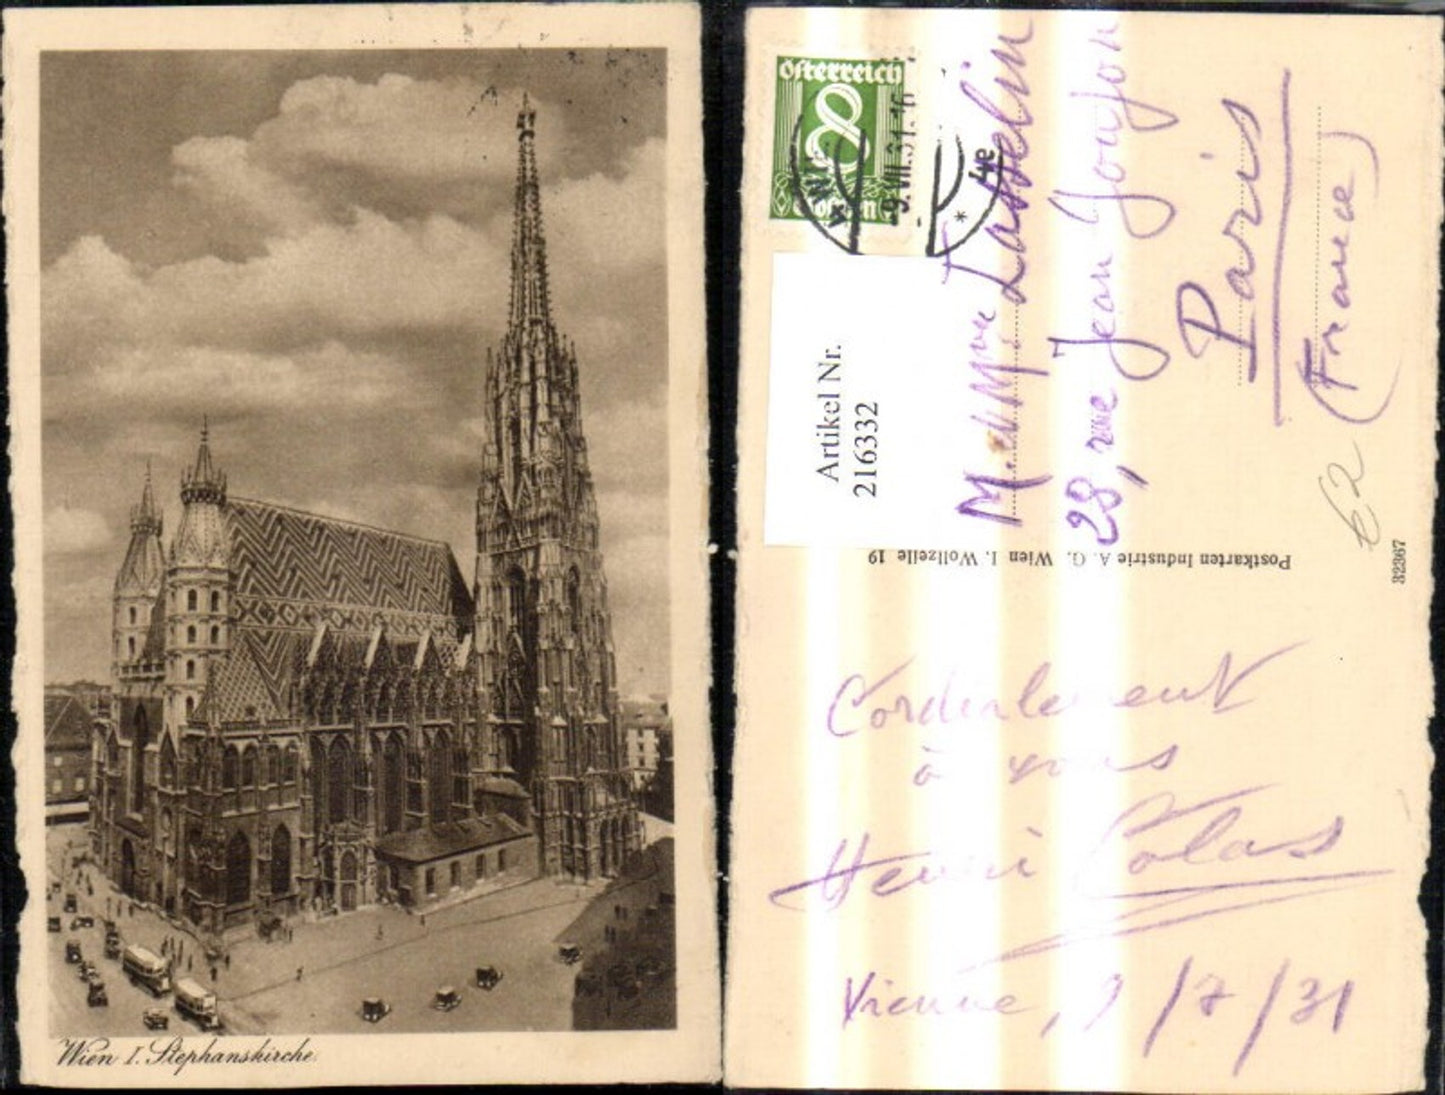 Wien I. Stephanskirche.
österreich
8
Groschen
-9.VII.31.16
*
Artikel Nr.
216332
M. et Mme
28, rue Jean Goujon
Paris
(France)
€2
Postkarten Industrie A. G. Wien I. Wollzeile 19
32367
Cordialement
à vous
Henri Colas
Vienne, 9/7/31